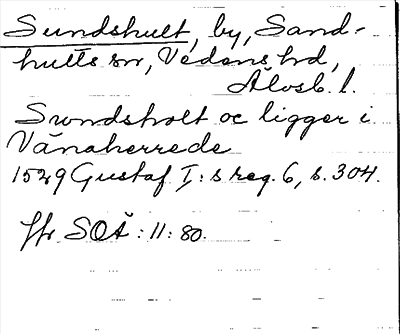 Sundshult, by, Sand-
hults sn, Vedens hd,
Älvsb. l.
Swndsholt oc ligger i
Vänaherrede
1529 Gustaf I:s reg. 6, s. 304.
Jfr SOÄ: 11: 80.